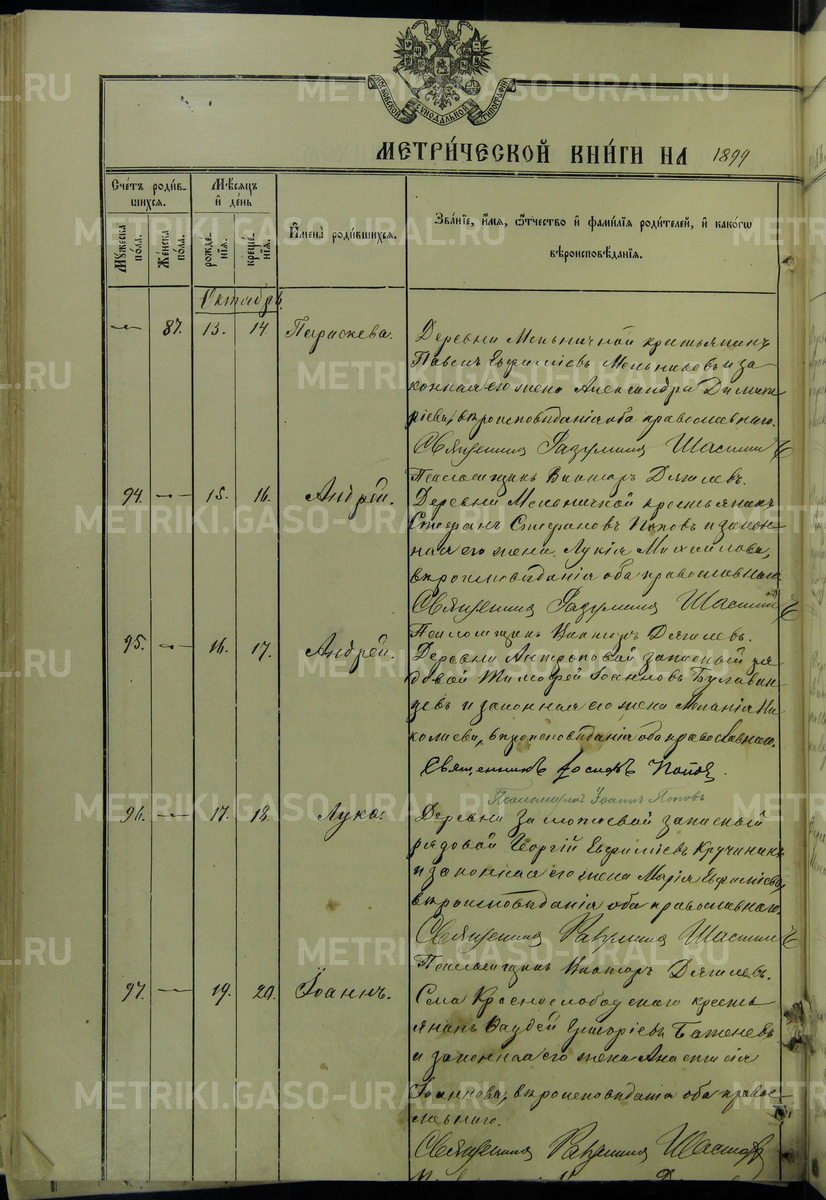 МЕТРИ́ЧЕСКОЙ КНИ́ГИ НА 1899
Сче́тъ роди́в-
шихся.
Мѣсяцъ
и҆ де́нь
Мꙋжеска
по́ла.
Же́нска
по́ла.
рожде́-
нїѧ.
креще́-
нїѧ.
И҆мена̀ роди́вшихся.
Зва́нїе, и҆́мѧ, ѻ҆́тчество и҆ фами́лїѧ роди́телей, и҆ како́гѡ
вѣроисповѣ́данїѧ.
Октябрь
— 87. 13. 14 Параскева.
Деревни Мельничной крестьянинъ
Павелъ Евфиміевъ Мельниковъ и за-
конная его жена Александра Димит-
ріева, вѣроисповѣданія оба православнаго.
Священникъ
Псаломщикъ Викторъ Дягилевъ.
94. — 15. 16. Андрей.
Деревни Мельничной крестьянинъ
Стефанъ Стефановъ Поповъ и закон-
ная его жена Лукія Михаилова,
вѣроисповѣданія оба православнаго
Священникъ
Псаломщикъ Викторъ Дягилевъ.
95. — 16. 17. Андрей.
Деревни Антроповой запасный ря-
довой Тимофей Іоанновъ Булавин-
цевъ и законная его жена Меланія Ни-
колаева, вѣроисповѣданія оба православнаго.
Священникъ Іосифъ Поповъ.
Псаломщикъ Іоаннъ Поповъ
96. — 17. 18. Лука.
Деревни запасный
рядовой Георгій Евфиміевъ Кручининъ
и законная его жена Марія Евфиміева,
вѣроисповѣданія оба православнаго.
Священникъ
Псаломщикъ Викторъ Дягилевъ.
97. — 19. 20. Іоаннъ.
Села Краснослободскаго кресть-
янинъ Григоріевъ Баженовъ
и законная его жена Анастасія
Іоаннова, вѣроисповѣданія оба право-
славнаго.
Священникъ
METRIKI.GASO-URAL.RU